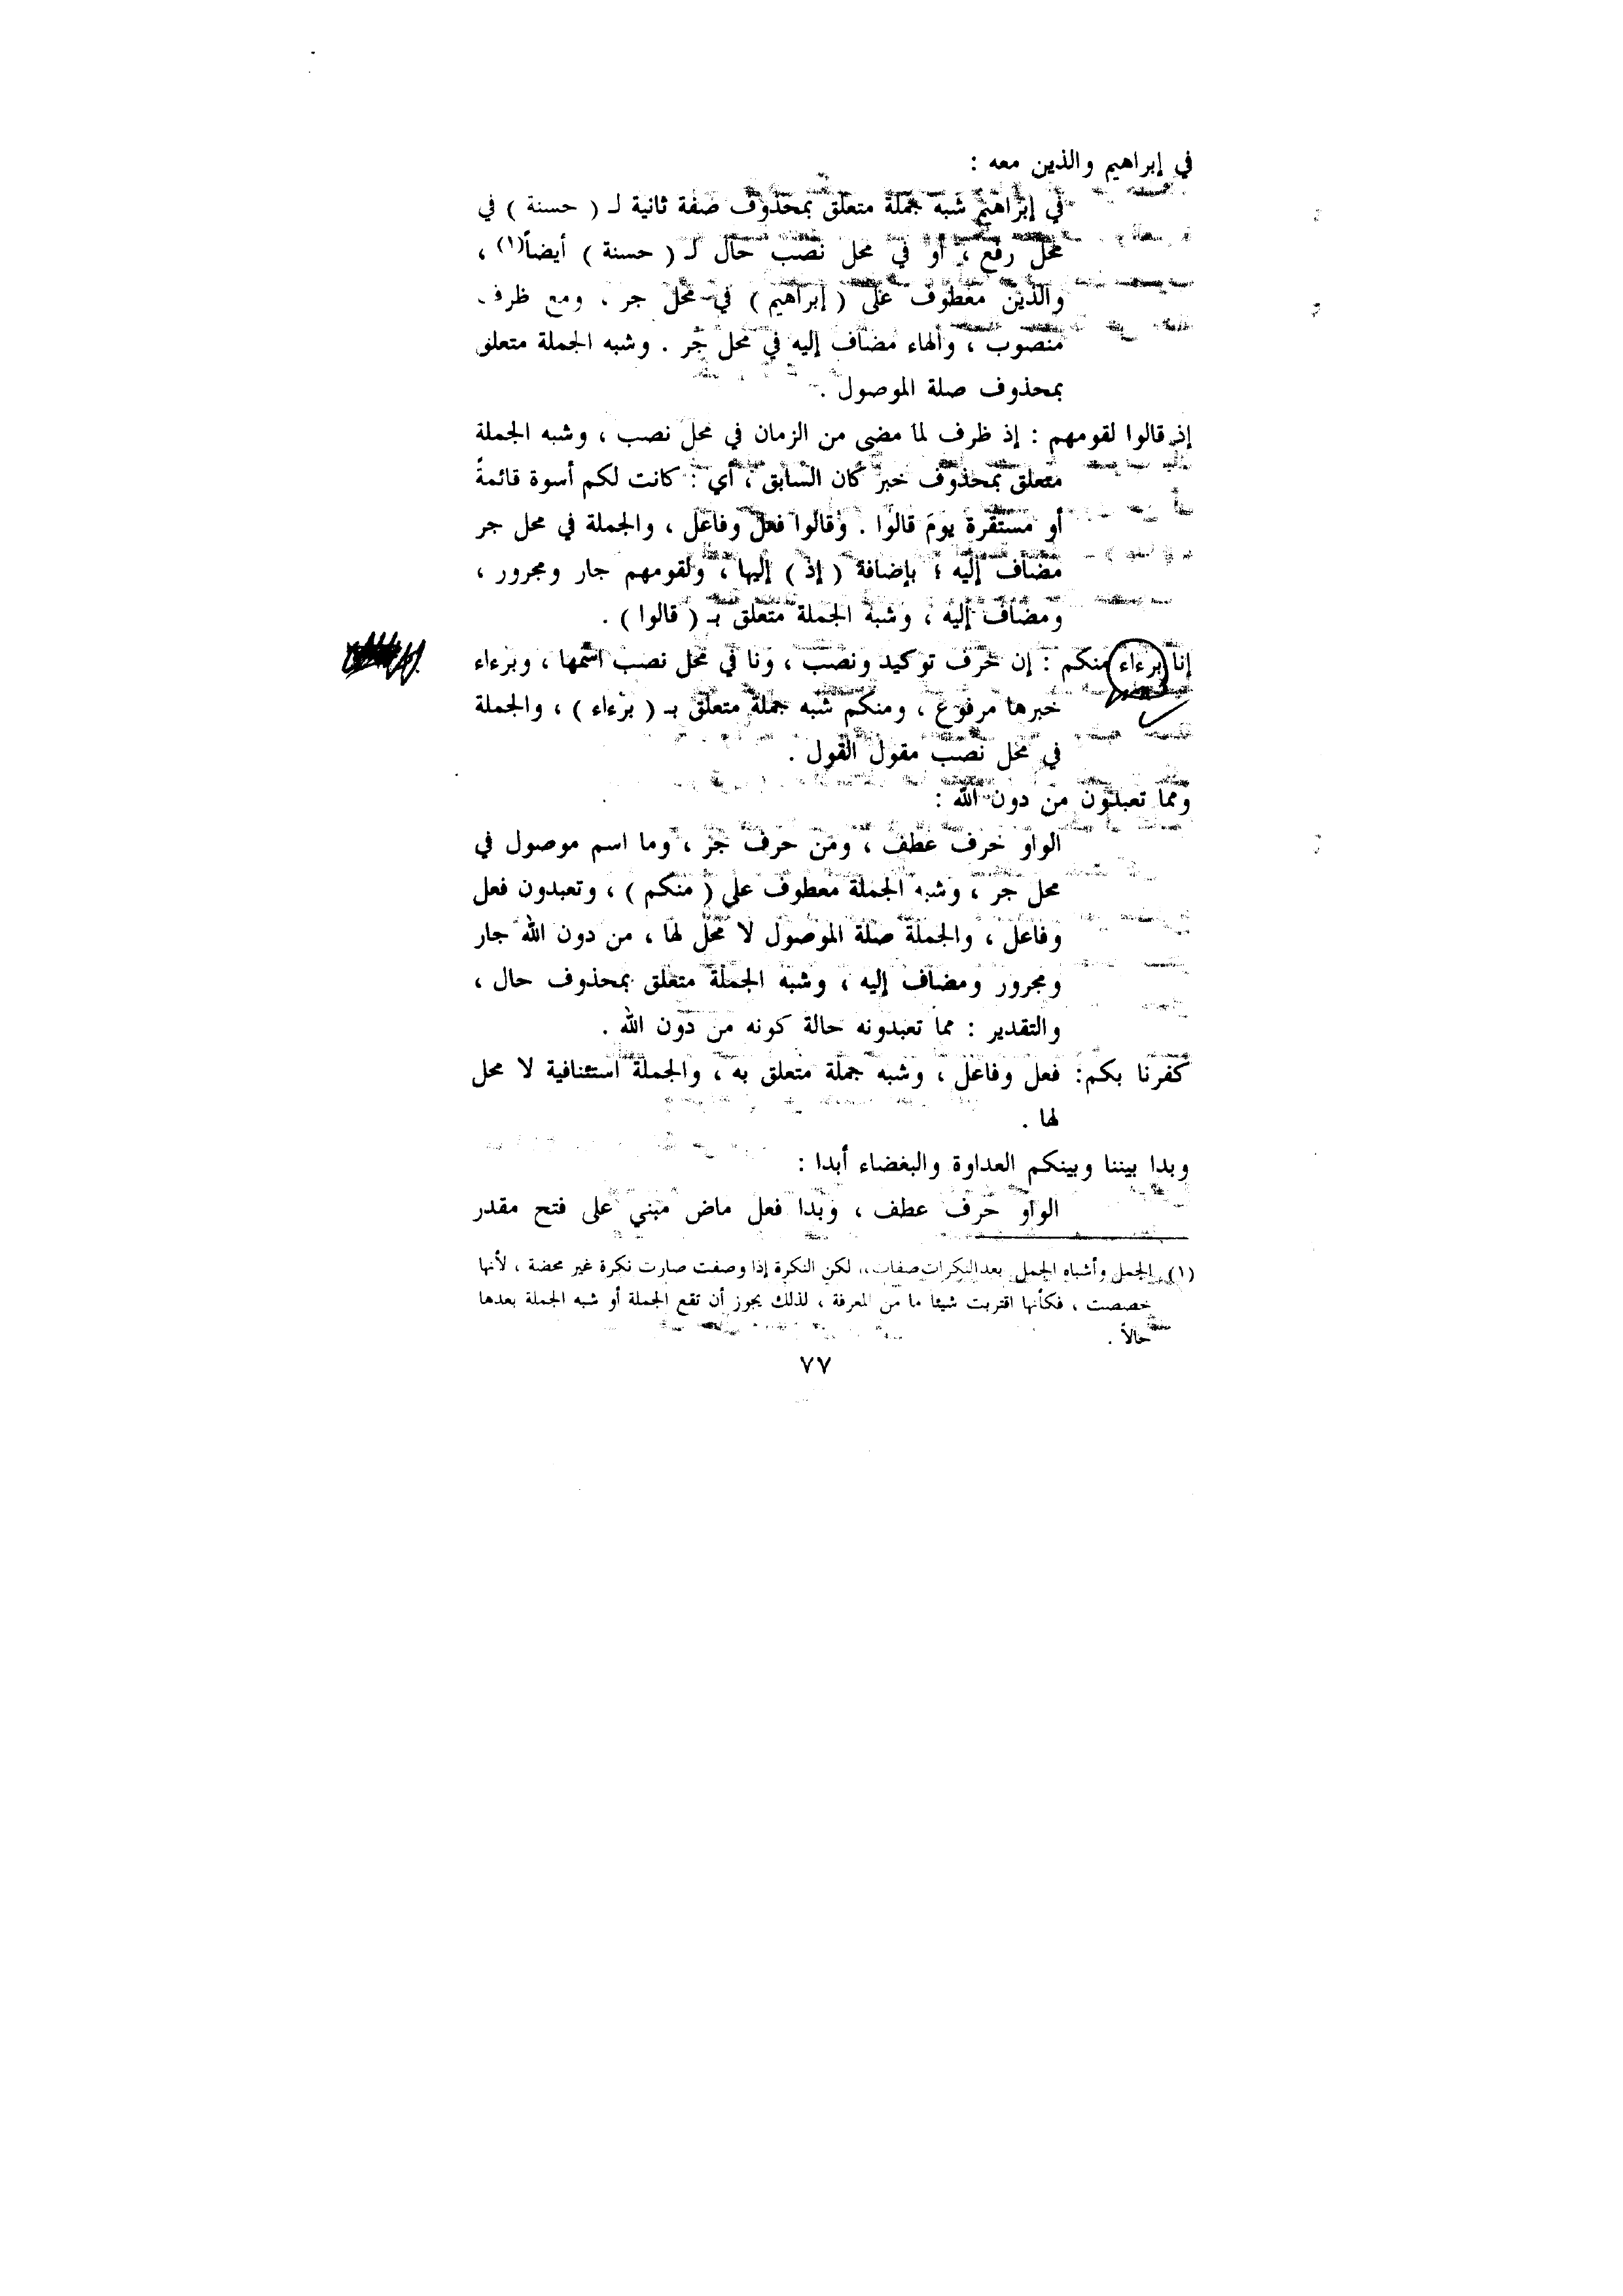 في إبراهيم والذين معه :
في إبراهيم شبه جملة متعلق بمحذوف صفة ثانية لـ ( حسنة ) في
محل رفع ، أو في محل نصب حال لـ ( حسنة ) أيضاً(١) ،
والذين معطوف على ( إبراهيم ) في محل جر . ومع ظرف
منصوب ، والهاء مضاف إليه في محل جر . وشبه الجملة متعلق
بمحذوف صلة الموصول .
إذ قالوا لقومهم : إذ ظرف لما مضى من الزمان في محل نصب ، وشبه الجملة
متعلق بمحذوف خبر كان السابق ، أي : كانت لكم أسوة قائمةً
أو مستقرة يومَ قالوا . وقالوا فعل وفاعل ، والجملة في محل جر
مضاف إليه ؛ بإضافة ( إذ ) إليها ، ولقومهم جار ومجرور ،
ومضاف إليه ، وشبه الجملة متعلق بـ ( قالوا ) .
إنا برءاء منكم : إن حرف توكيد ونصب ، ونا في محل نصب اسمها ، وبرءاء
خبرها مرفوع ، ومنكم شبه جملة متعلق بـ ( برءاء ) ، والجملة
في محل نصب مقول القول .
ومما تعبدون من دون الله :
الواو حرف عطف ، ومن حرف جر ، وما اسم موصول في
محل جر ، وشبه الجملة معطوف على ( منكم ) ، وتعبدون فعل
وفاعل ، والجملة صلة الموصول لا محل لها ، من دون الله جار
ومجرور ومضاف إليه ، وشبه الجملة متعلق بمحذوف حال ،
والتقدير : مما تعبدونه حالة كونه من دون الله .
كفرنا بكم: فعل وفاعل ، وشبه جملة متعلق به ، والجملة استئنافية لا محل
لها .
وبدا بيننا وبينكم العداوة والبغضاء أبدا :
الواو حرف عطف ، وبدا فعل ماض مبني على فتح مقدر
(١) الجمل وأشباه الجمل بعد النكرات صفات ، لكن النكرة إذا وصفت صارت نكرة غير محضة ، لأنها
خصصت ، فكأنها اقتربت شيئا ما من المعرفة ، لذلك يجوز أن تقع الجملة أو شبه الجملة بعدها
حالاً .
٧٧